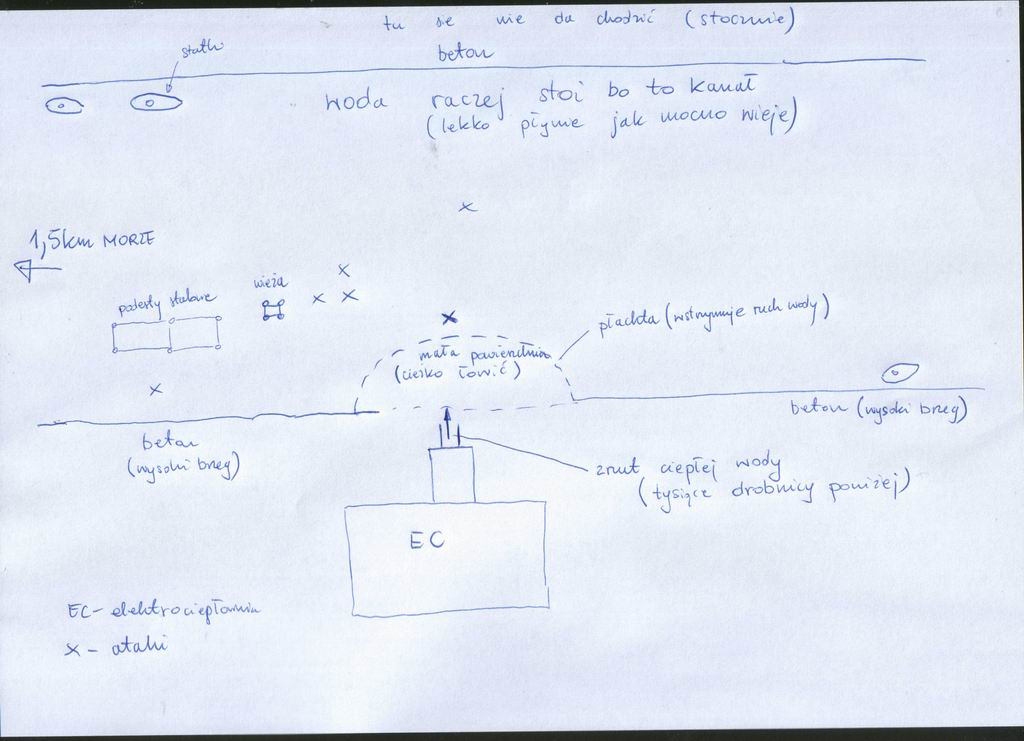 tu się nie da chodzić (stocznie)
statki
beton
woda raczej stoi bo to kanał
(lekko płynie jak mocno wieje)
1,5km MORZE
wieża
podesty stalowe
płachta (wstrzymuje ruch wody)
mała powierzchnia
(ciężko łowić)
beton (wysoki brzeg)
beton
(wysoki brzeg)
zrzut ciepłej wody
(tysiące drobnicy poniżej)
EC
EC- elektrociepłownia
x - ataki